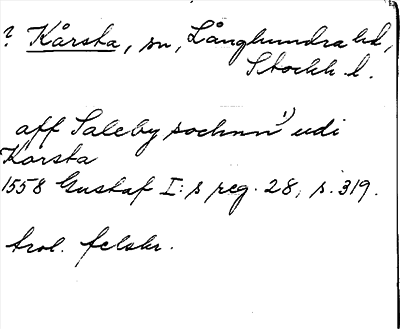 ? Kårsta, sn, Långhundra hd,
Stockh. l.
aff Saleby sochnn 1) udi
Karsta
1558 Gustaf I:s reg. 28, s. 319.
trol. felskr.